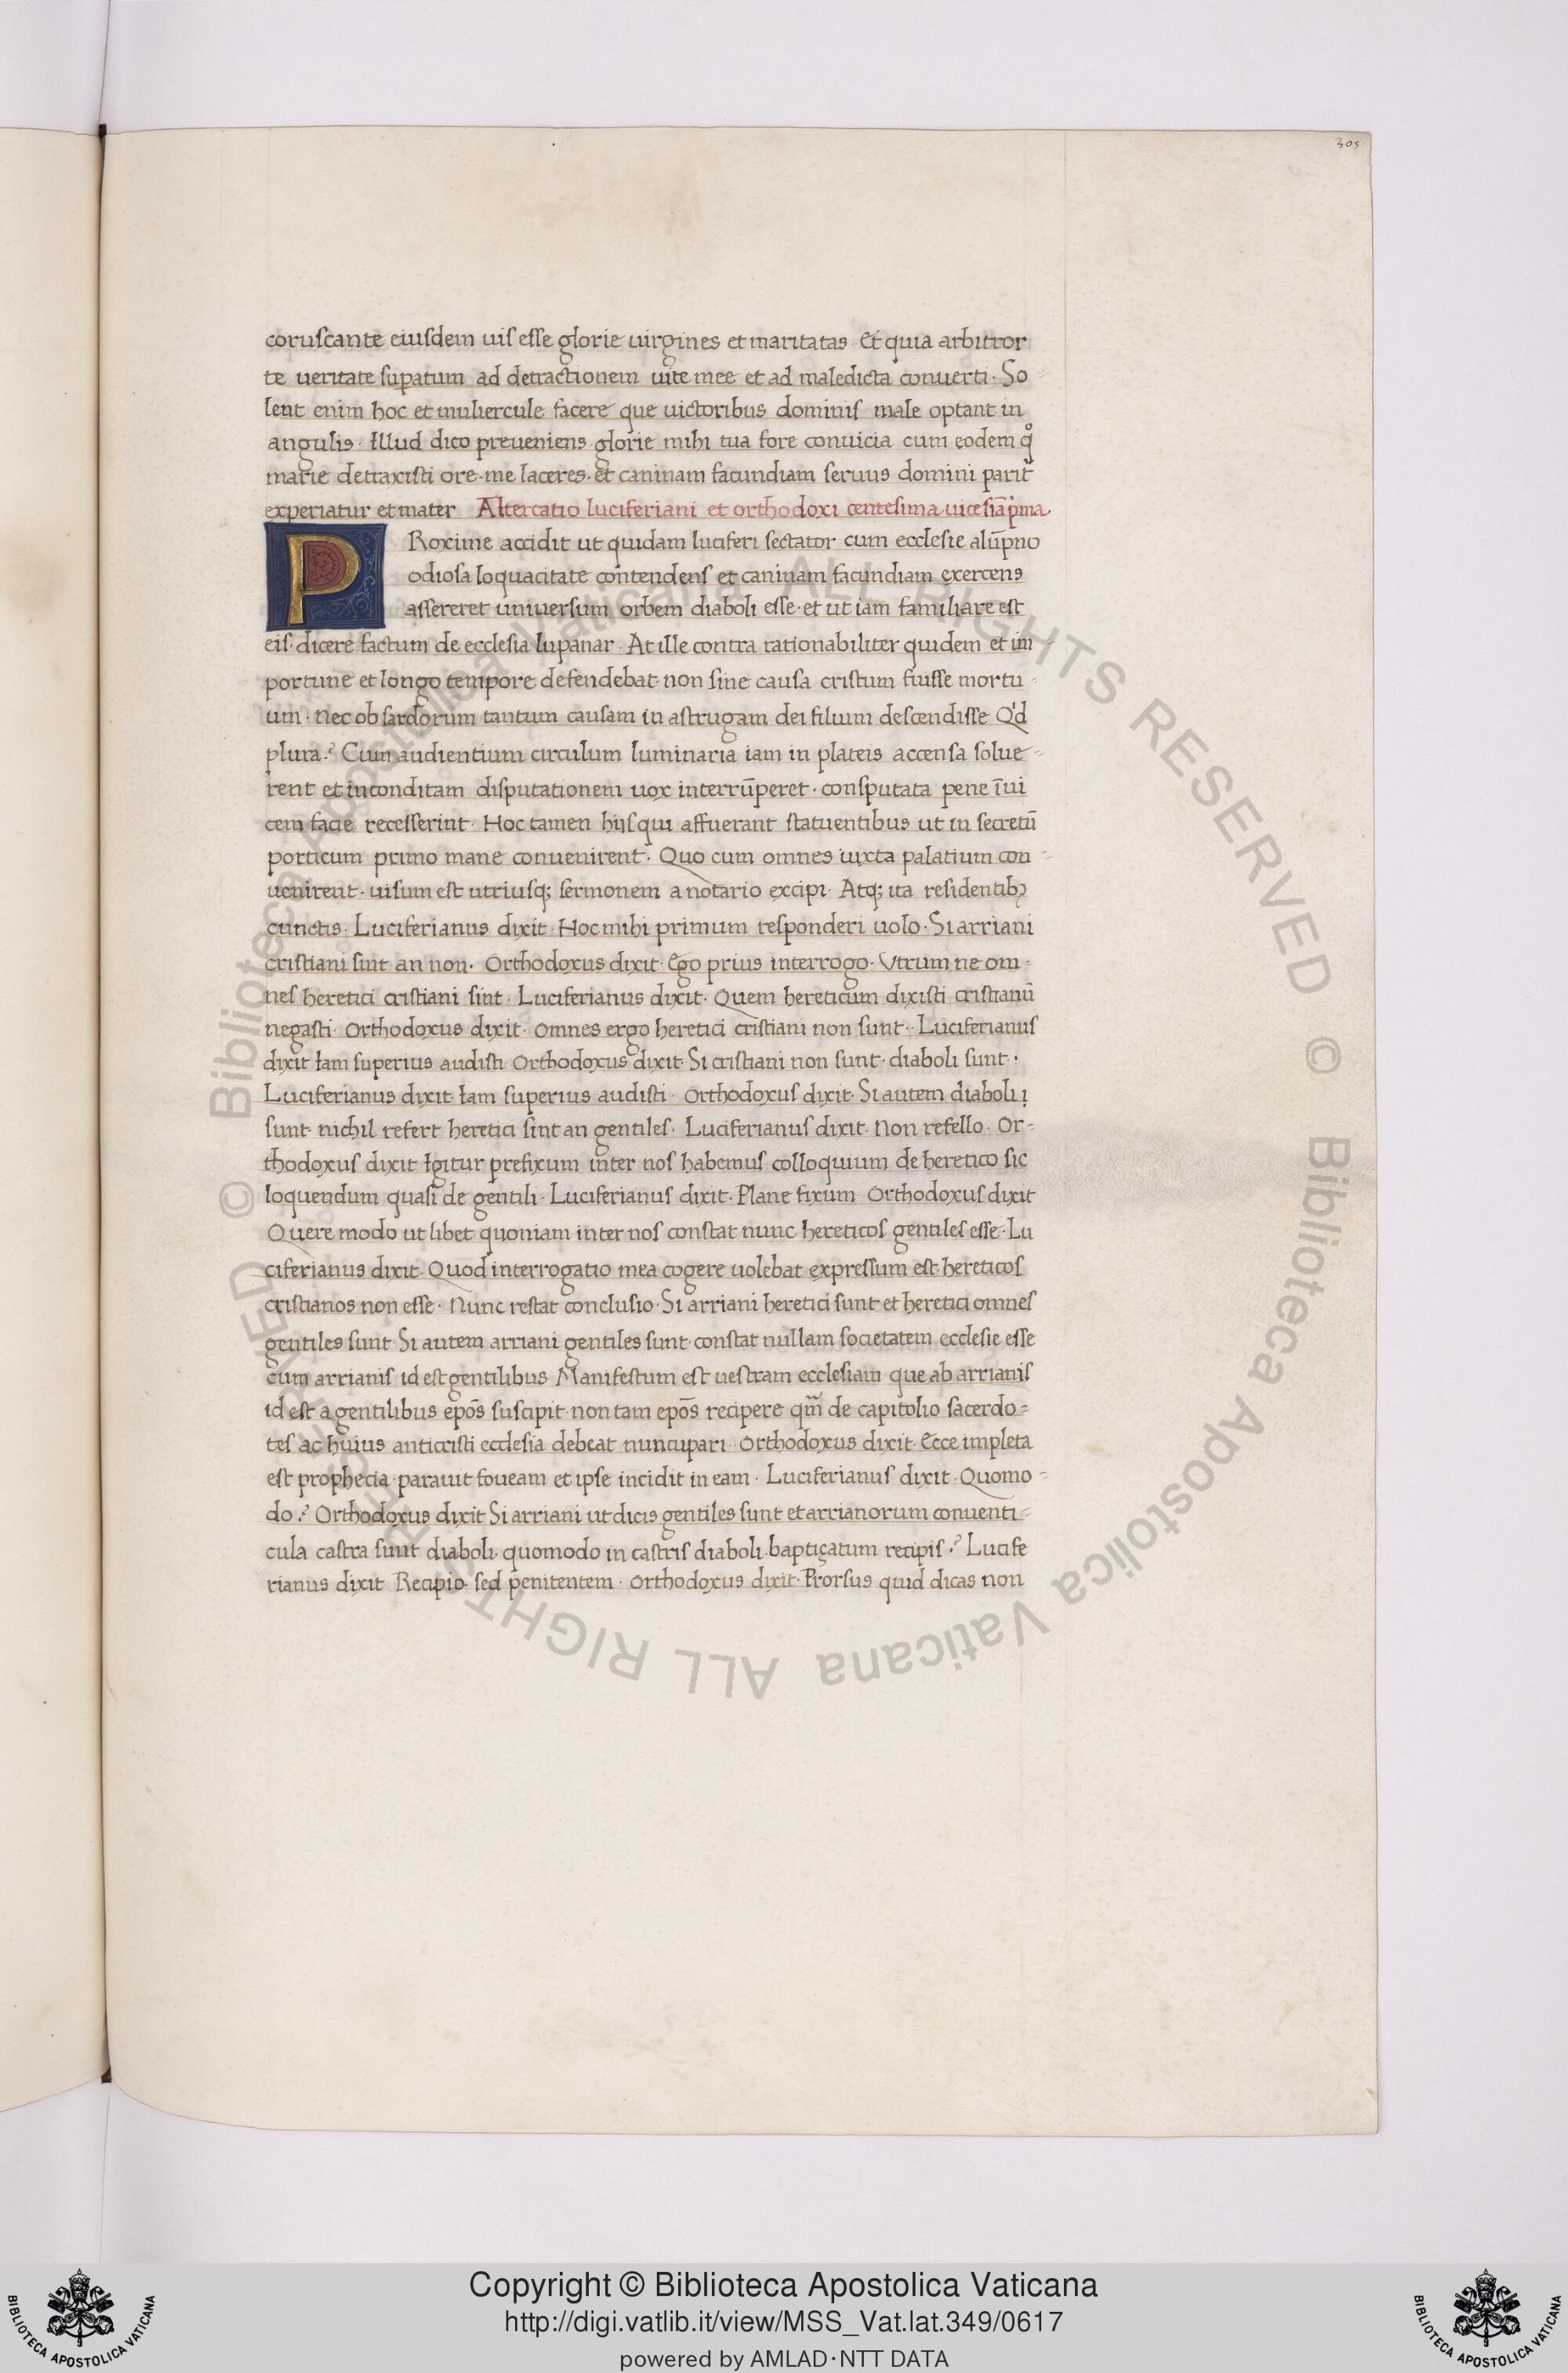 305
coruscante eiusdem uis esse glorie uirgines et maritatas Et quia arbitror
te ueritate supatum ad detractionem uite mee et ad maledicta conuerti · So-
lent enim hoc et muliercule facere que uictoribus dominis male optant in
angulis · Illud dico preueniens glorie mihi tua fore conuicia cum eodem q̊
marie detraxisti ore · me laceres · et caninam facundiam seruus domini parit̃
experiatur et mater Altercatio luciferiani et orthodoxi centesima uicesiãpma
PRoxime accidit ut quidam luciferi sectator cum ecclesie alũpno
odiosa loquacitate contendens et caninam facundiam exercens
assereret uniuersum orbem diaboli esse · et ut iam familiare est
eis · dicere factum de ecclesia lupanar · At ille contra rationabiliter quidem et im-
portune et longo tempore defendebat non sine causa cristum fuisse mortu-
um · nec ob sardorum tantum causam in astrugam dei filium descendisse Q'd
plura? Cum audientium circulum luminaria iam in plateis accensa solue-
rent et inconditam disputationem uox interrũperet · consputata pene ĩui
cem facie recesserint · Hoc tamen hijs qui affuerant statuentibus ut in secretũ
porticum primo mane conuenirent · Quo cum omnes iuxta palatium con-
uenirent · uisum est utriusq; sermonem a notario excipi · Atq; ita residentibꝫ
cunctis · Luciferianus dixit · Hoc mihi primum responderi uolo · Si arriani
cristiani sint an non · Orthodoxus dixit · Ego prius interrogo · Vtrum ne om-
nes heretici cristiani sint · Luciferianus dixit · Quem hereticum dixisti cristianũ
negasti · Orthodoxus dixit · Omnes ergo heretici cristiani non sunt · Luciferianus
dixit Iam superius audisti Orthodoxus dixit · Si cristiani non sunt · diaboli sunt ·
Luciferianus dixit Iam superius audisti · Orthodoxus dixit · Si autem diaboli
sunt · nichil refert heretici sint an gentiles · Luciferianus dixit · Non refello · Or-
thodoxus dixit Igitur prefixum inter nos habemus colloquium de heretico sic
loquendum quasi de gentili · Luciferianus dixit · Plane fixum Orthodoxus dixit
Quere modo ut libet quoniam inter nos constat nunc hereticos gentiles esse · Lu
ciferianus dixit · Quod interrogatio mea cogere uolebat expressum est · hereticos
cristianos non esse · Nunc restat conclusio · Si arriani heretici sunt et heretici omnes
gentiles sunt Si autem arriani gentiles sunt · constat nullam societatem ecclesie esse
cum arrianis id est gentilibus Manifestum est uestram ecclesiam que ab arrianis
id est a gentilibus ep̃os suscipit · non tam ep̃os recipere qm̃ de capitolio sacerdo-
tes ac huius anticristi ecclesia debeat nuncupari · Orthodoxus dixit · Ecce impleta
est prophecia · parauit foueam et ipse incidit in eam · Luciferianus dixit · Quomo-
do? Orthodoxus dixit Si arriani ut dicis gentiles sunt et arrianorum conuenti-
cula castra sunt diaboli · quomodo in castris diaboli · baptiçatum recipis? Lucife
rianus dixit Recipio · sed penitentem · Orthodoxus dixit · Prorsus quid dicas non
© Biblioteca Apostolica Vaticana ALL RIGHTS RESERVED © Biblioteca Apostolica Vaticana ALL RIGHTS RESERVED
Copyright © Biblioteca Apostolica Vaticana
http://digi.vatlib.it/view/MSS_Vat.lat.349/0617
powered by AMLAD·NTT DATA
BIBLIOTECA APOSTOLICA VATICANA
BIBLIOTECA APOSTOLICA VATICANA